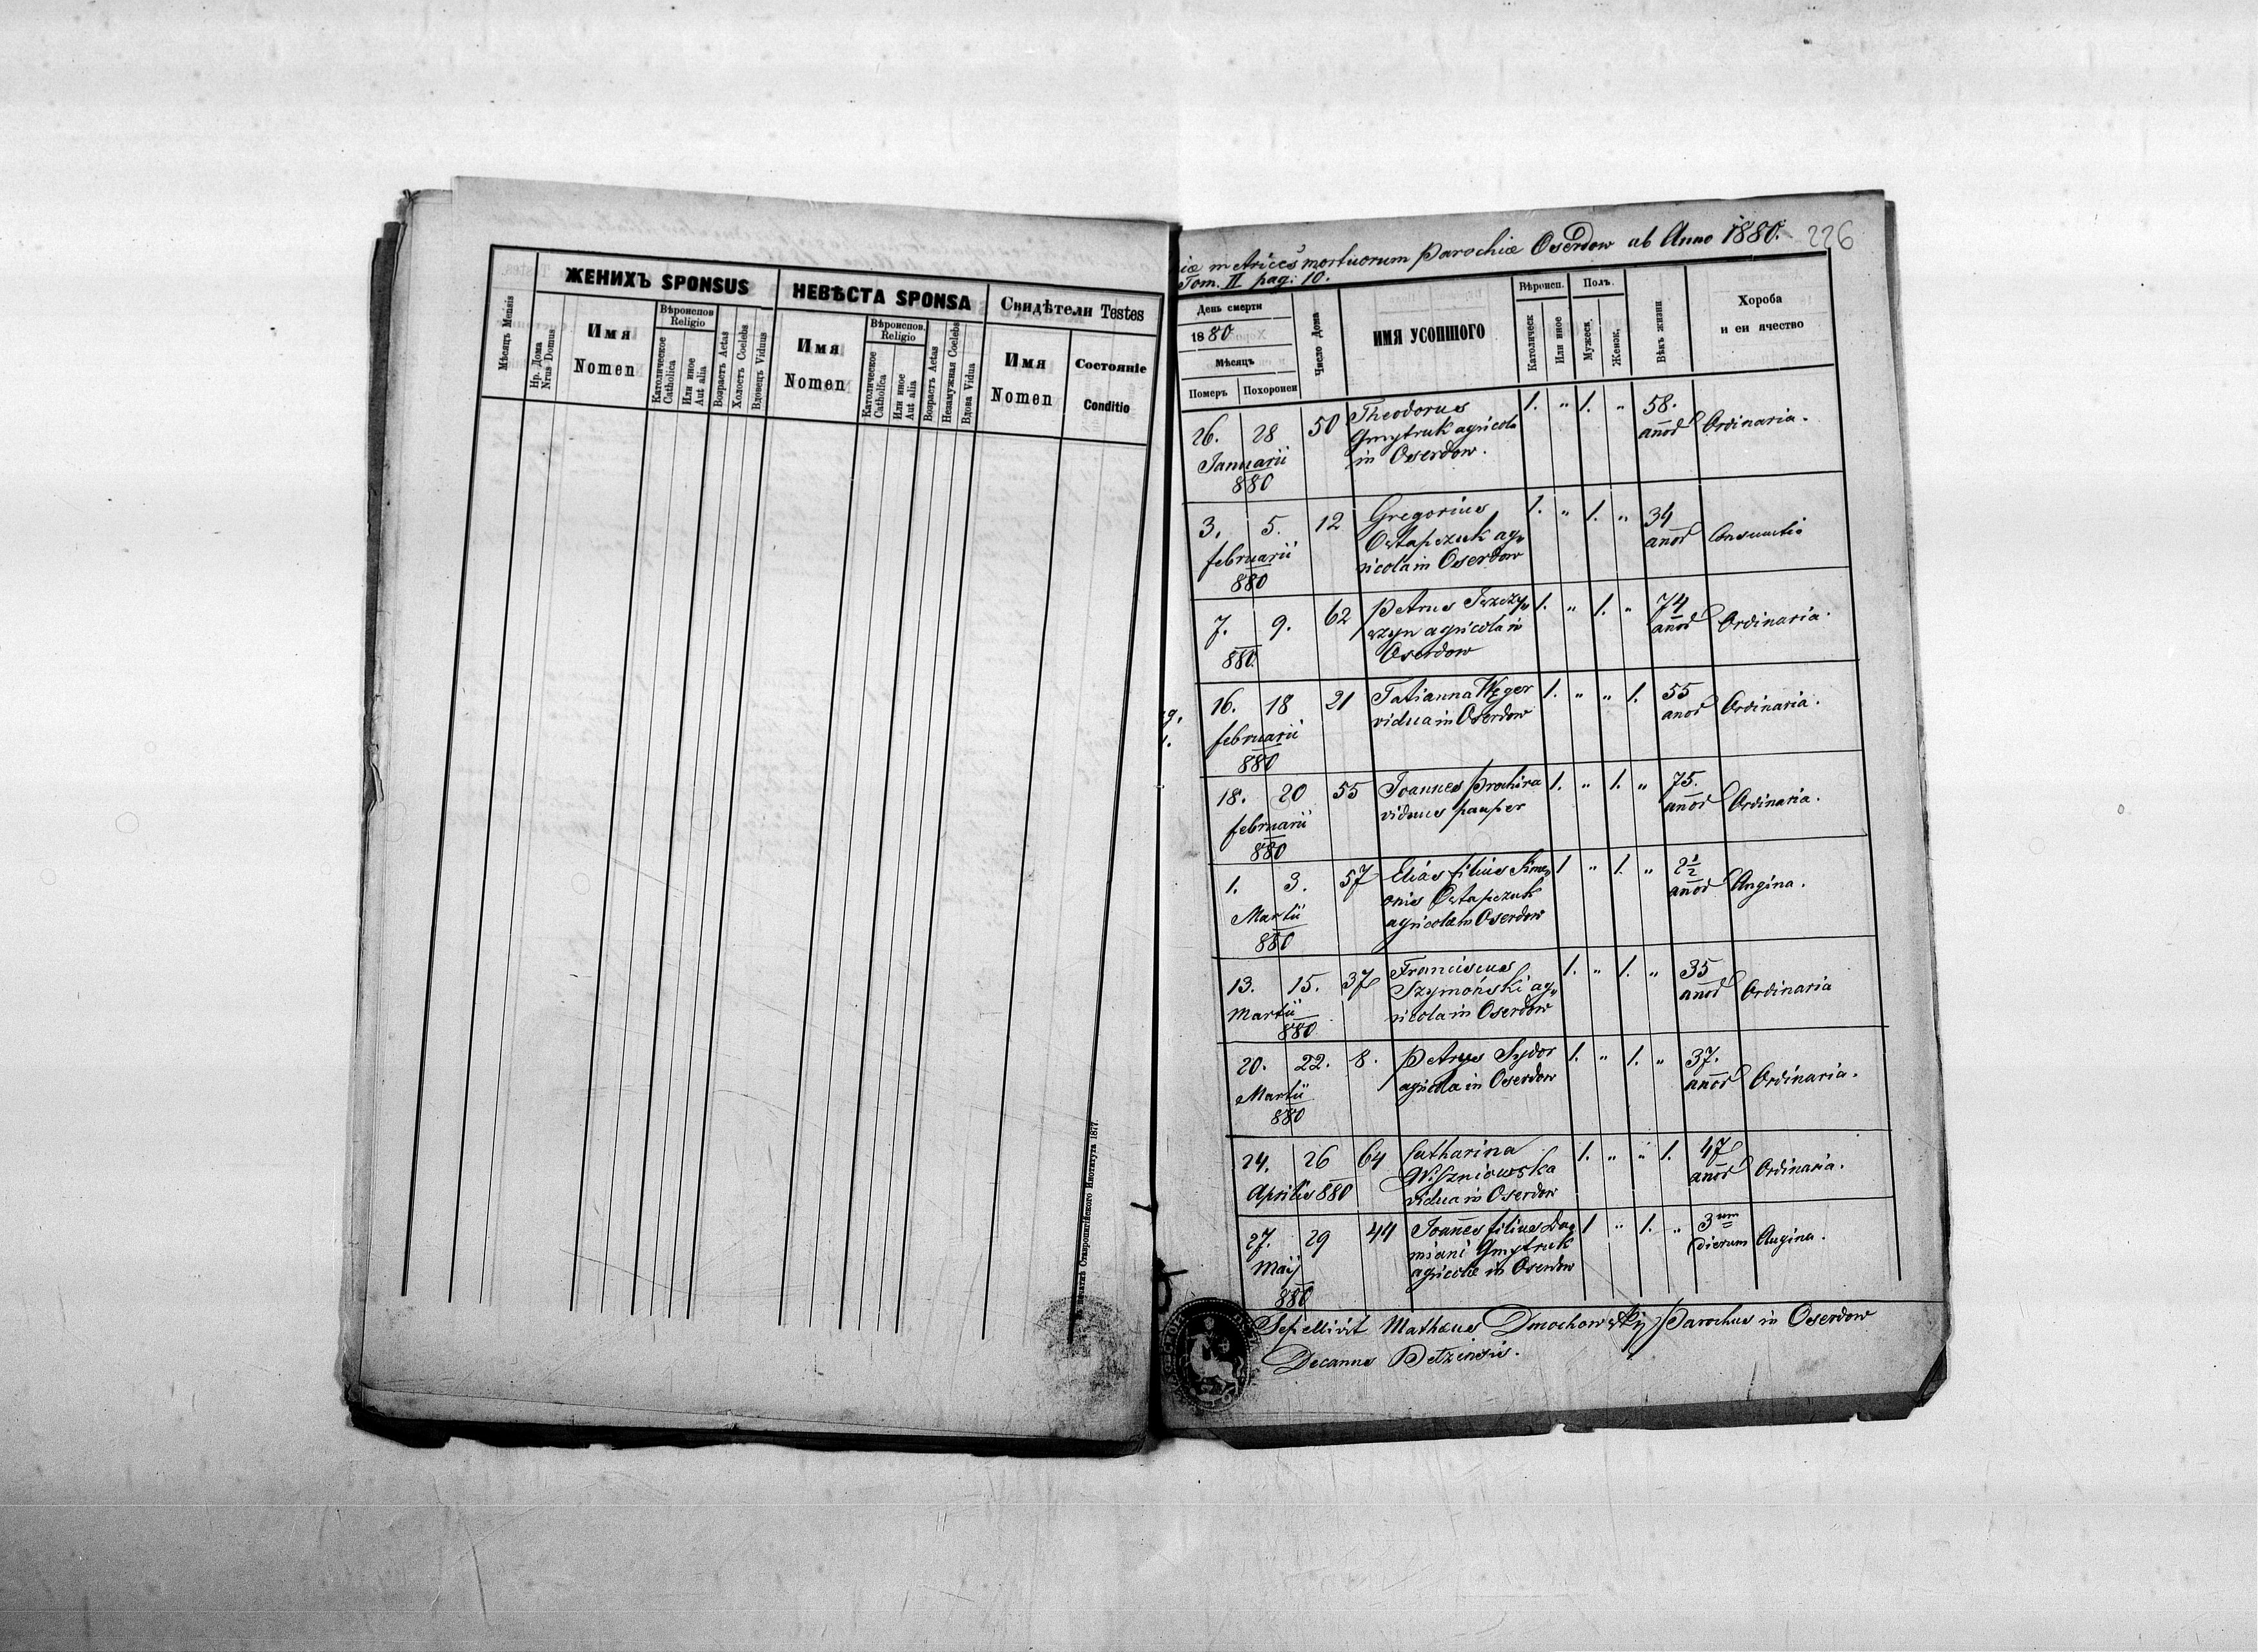 ЖЕНИХЪ SPONSUS
НЕВѢСТА SPONSA
Свидѣтели Testes
Мѣсяцъ Mensis
Нр. Дома
Nrus Domus
Имя
Nomen
Вѣроиспов
Religio
Католическое
Catholica
Или иное
Aut alia
Возрастъ Aetas
Холостъ Coelebs
Вдовецъ Viduus
Имя
Nomen
Вѣроиспов.
Religio
Католическое
Catholica
Или иное
Aut alia
Возрастъ Aetas
Незамужная Coelebs
Вдова Vidua
Имя
Nomen
Состояніе
Conditio
печаткѣ Ставропигійского Института 1877.
iæ metrices mortuorum Parochiæ Oserdow ab Anno 1880. 226
Tom. II pag: 10.
День смерти
1880
Мѣсяць
Померъ Похоронен
Число Дома
ИМЯ УСОПШОГО
Вѣроисп.
Католическ
Или иное
Полъ.
Мужеск.
Женск,
Вѣкъ жизни
Хороба
и еи ячество
26. 28 50 Theodorus 1. " 1. " 58.
Januarii Gmytruk agricola anor Ordinaria.
880 in Oserdow.
3. 5. 12 Gregorius 1. " 1. " 34
februarii Ostapczuk ag„ anor Consumtio
880 ricola in Oserdow
7. 9. 62 Petrus 1. " 1. " 74
880. agricola in anor Ordinaria.
Oserdow
16. 18 21 Tatianna Węger 1. " " 1. 55
februarii vidua in Oserdow anor Ordinaria.
880
18. 20 55 Joannes Prochira 1. " 1. " 75.
februarii viduus pauper anor Ordinaria.
880
1. 3. 57 Elias filius Sime„ 1 " 1. " 2½
Martii onis Ostapczuk anor Angina.
880 agricola in Oserdow
13. 15. 37 Franciscus 1. " 1. " 35
Martii Szymoński ag„ anor Ordinaria
880 ricola in Oserdow
20. 22. 8. Petrus Sydor 1. " 1. " 37.
Martii agricola in Oserdow anor Ordinaria.
880
24. 26 64 Catharina 1. " " 1. 47
Aprilis 880 Wiszniowska anor Ordinaria.
vidua in Oserdow
27. 29 44 Joannes filius Da„ 1 " 1. " 3um
Maij miani Gmytruk dierum Angina.
880 agricolæ in Oserdow
Sepellivit Mathæus Dmochowskij Parochus in Oserdow
Decanus Betzensis.